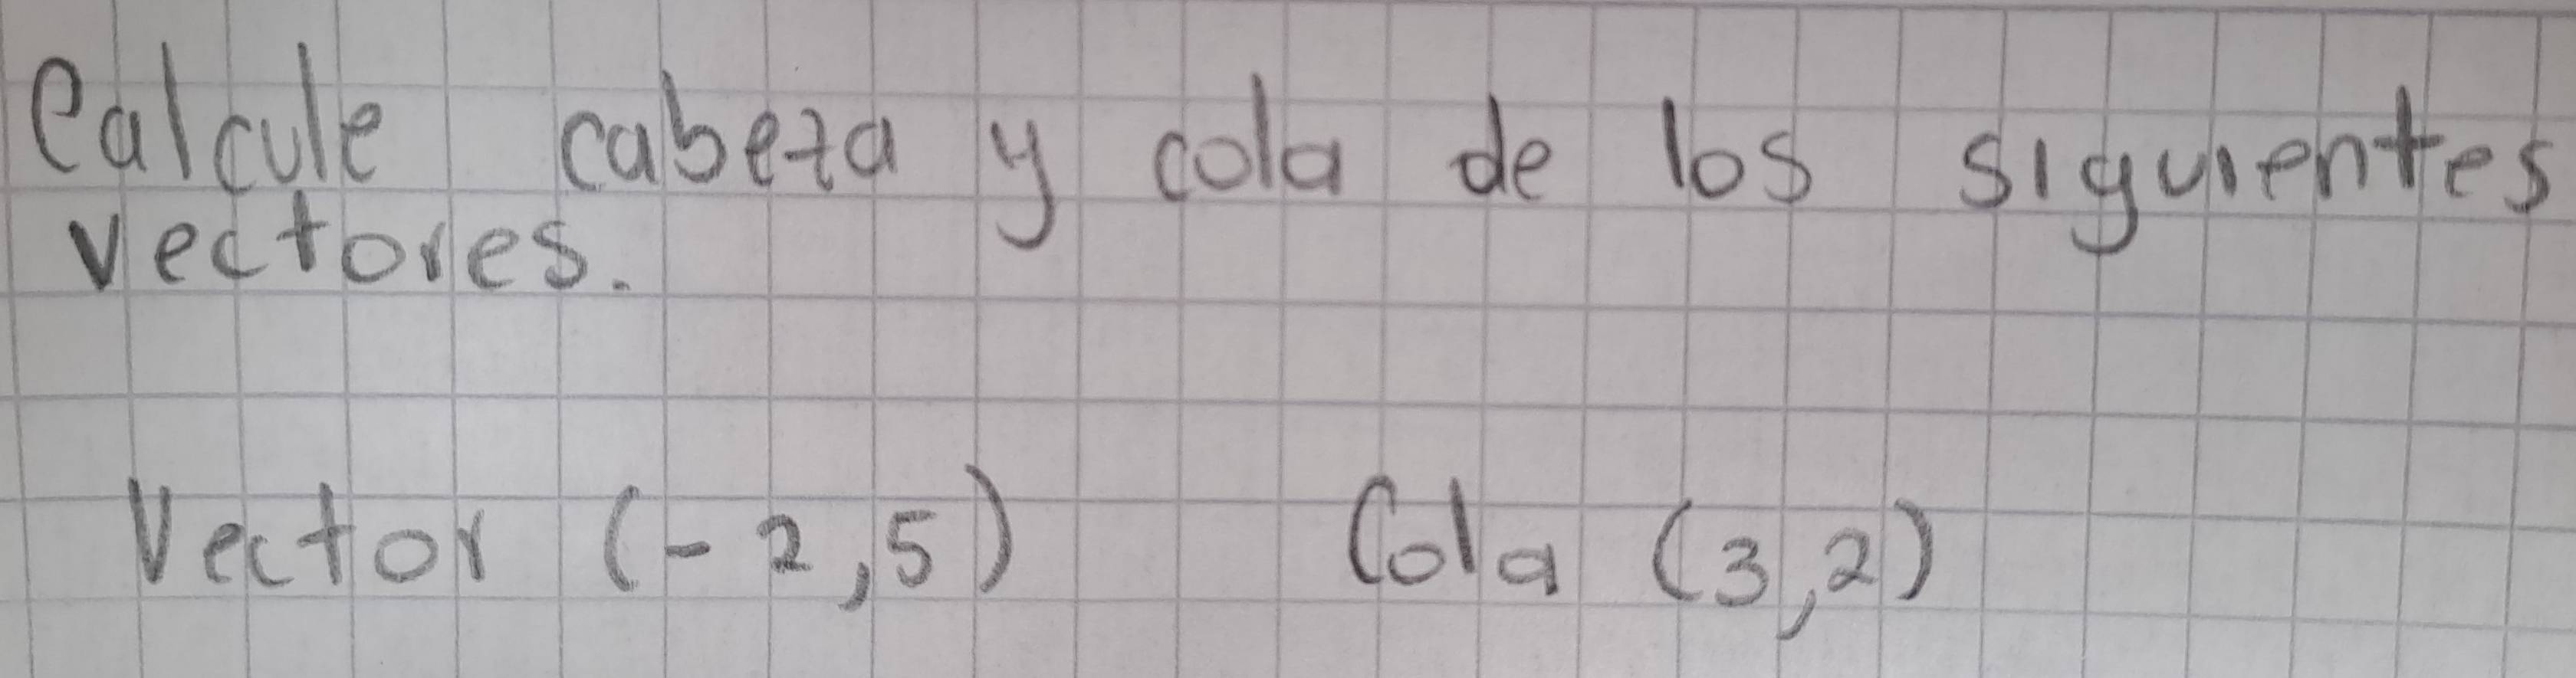 Calcule cabeza y cola de los siguientes
vectores.
Vector (-2,5) Cola (3,2)